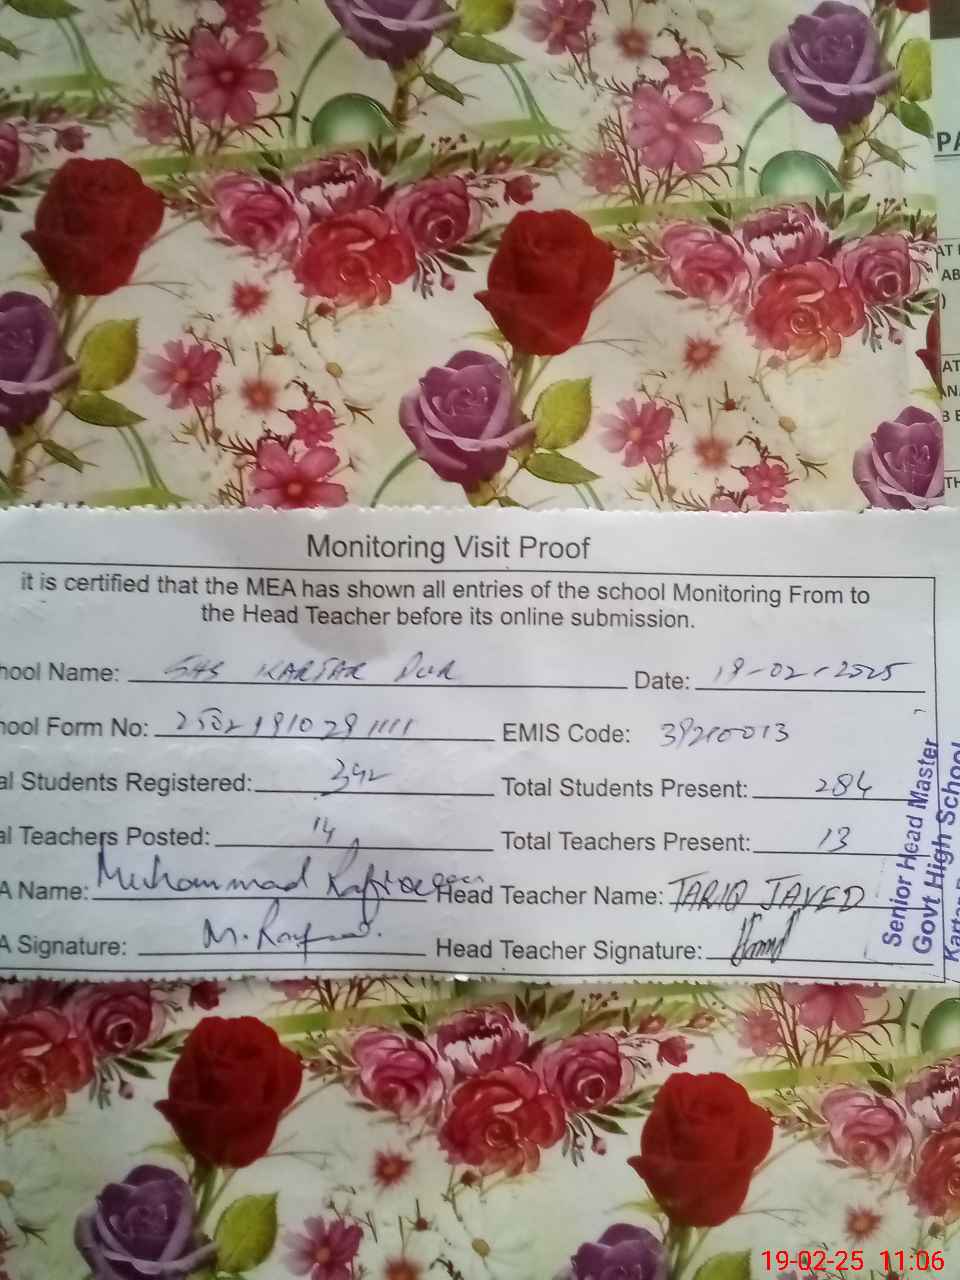 PA
AT
AB
)
AT
NA
B E
TH
Monitoring Visit Proof
it is certified that the MEA has shown all entries of the school Monitoring From to
the Head Teacher before its online submission.
hool Name: GHS KARTAR PUR Date: 19-02-2025
hool Form No: EMIS Code: 39210013
al Students Registered: 342 Total Students Present: 284
al Teachers Posted: 14 Total Teachers Present: 13
A Name: Muhammad Head Teacher Name: TARIQ JAVED
A Signature: Head Teacher Signature:
Senior Head Master
Govt High School
Kartar
19-02-25 11:06